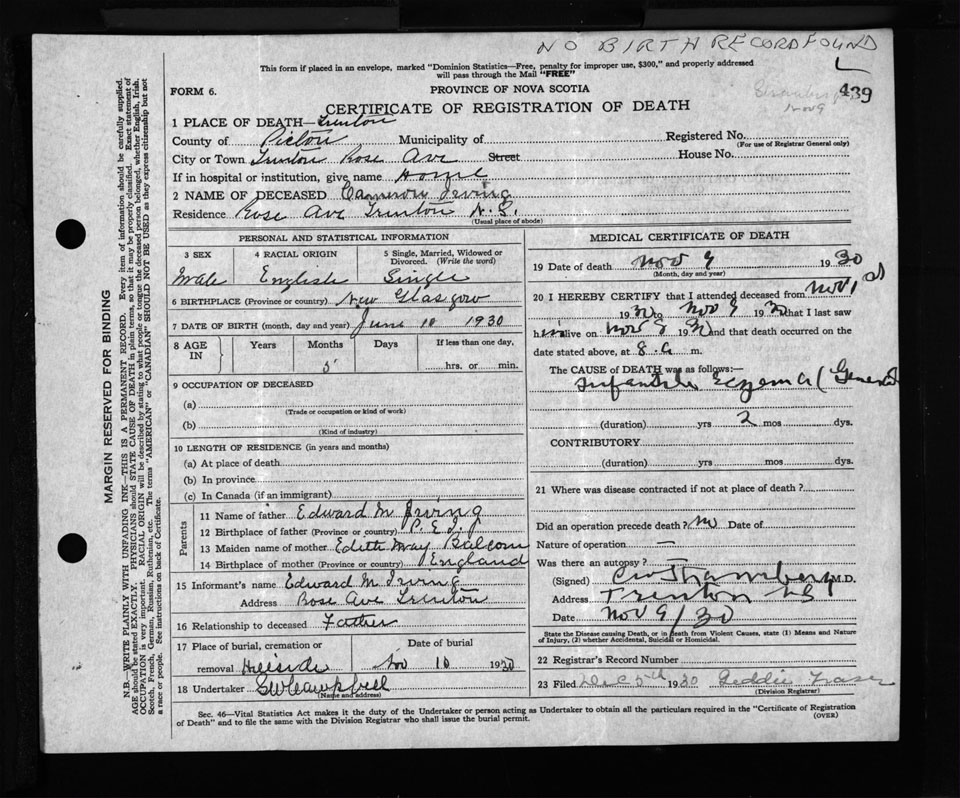 NO BIRTH RECORD FOUND
This form if placed in an envelope, marked "Dominion Statistics—Free, penalty for improper use, $300," and properly addressed
will pass through the Mail "FREE"
L
FORM 6.
PROVINCE OF NOVA SCOTIA
439
Nov 9
CERTIFICATE OF REGISTRATION OF DEATH
1 PLACE OF DEATH— Trenton
County of Pictou Municipality of Registered No.
(For use of Registrar General only)
City or Town Trenton Rose Ave Street House No.
If in hospital or institution, give name Home
2 NAME OF DECEASED Cameron Irving
Residence Rose Ave Trenton N.S.
(Usual place of abode)
PERSONAL AND STATISTICAL INFORMATION
3 SEX 4 RACIAL ORIGIN 5 Single, Married, Widowed or Divorced. (Write the word)
Male English Single
6 BIRTHPLACE (Province or country) New Glasgow
7 DATE OF BIRTH (month, day and year) June 10 1930
8 AGE IN Years Months Days If less than one day,
5 hrs. or min.
9 OCCUPATION OF DECEASED
(a)
(Trade or occupation or kind of work)
(b)
(Kind of industry)
10 LENGTH OF RESIDENCE (in years and months)
(a) At place of death
(b) In province
(c) In Canada (if an immigrant)
Parents
11 Name of father Edward M Irving
12 Birthplace of father (Province or country) P.E.I.
13 Maiden name of mother Edith May Balcom
14 Birthplace of mother (Province or country) England
15 Informant's name Edward M Irving
Address Rose Ave Trenton
16 Relationship to deceased Father
17 Place of burial, cremation or Date of burial
removal Hillside Nov 10 1930
18 Undertaker GW Campbell
(Name and address)
MEDICAL CERTIFICATE OF DEATH
19 Date of death Nov 9 1930
(Month, day and year)
20 I HEREBY CERTIFY that I attended deceased from Nov 1st
1930 to Nov 9 1930 that I last saw
him alive on Nov 8 1930 and that death occurred on
date stated above, at 8.a m.
The CAUSE OF DEATH was as follows:—
Infantile Eczema (General
(duration) yrs 2 mos dys.
CONTRIBUTORY
(duration) yrs mos dys.
21 Where was disease contracted if not at place of death?
Did an operation precede death? no Date of
Nature of operation —
Was there an autopsy?
(Signed) M.D.
Address Trenton NS
Date Nov 9/30
State the Disease causing Death, or in death from Violent Causes, state (1) Means and Nature
of Injury, (2) whether Accidental, Suicidal or Homicidal.
22 Registrar's Record Number
23 Filed Dec 5th 1930 Geddie Fraser
(Division Registrar)
Sec. 46—Vital Statistics Act makes it the duty of the Undertaker or person acting as Undertaker to obtain all the particulars required in the "Certificate of Registration
of Death" and to file the same with the Division Registrar who shall issue the burial permit.
(OVER)
MARGIN RESERVED FOR BINDING
N.B.—WRITE PLAINLY WITH UNFADING INK—THIS IS A PERMANENT RECORD. Every item of information should be carefully supplied.
AGE should be stated EXACTLY. PHYSICIANS should STATE CAUSE OF DEATH in plain terms, so that it may be properly classified. Exact statement of
OCCUPATION is very important. RACIAL ORIGIN will be described by stating to what people or tongue the deceased person belonged, whether English, Irish,
Scotch, French, German, Russian, Ruthenian, etc. The terms "AMERICAN" or "CANADIAN" SHOULD NOT BE USED as they express citizenship but not
a race or people. See instructions on back of Certificate.